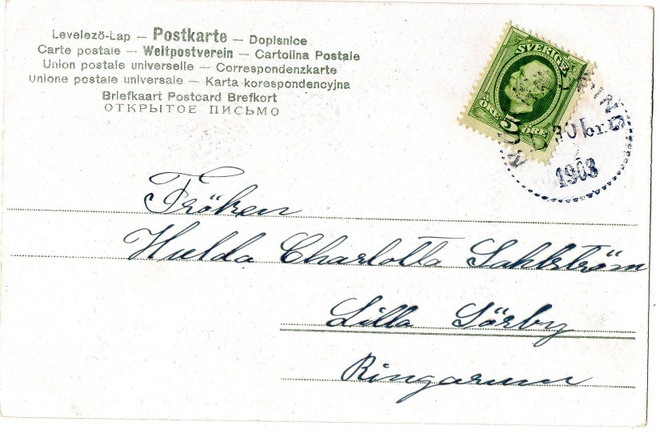 Levelező-Lap — Postkarte — Dopisnice
Carte postale — Weltpostverein — Cartolina Postale
Union postale universelle — Correspondenzkarte
Unione postale universale — Karta korespondencyjna
Briefkaart Postcard Brefkort
ОТКРЫТОЕ ПИСЬМО
SVERIGE
ÖRE 5 ÖRE
1903
Fröken
Hulda Charlotta Sahlström
Lilla Sörby
Ringarum